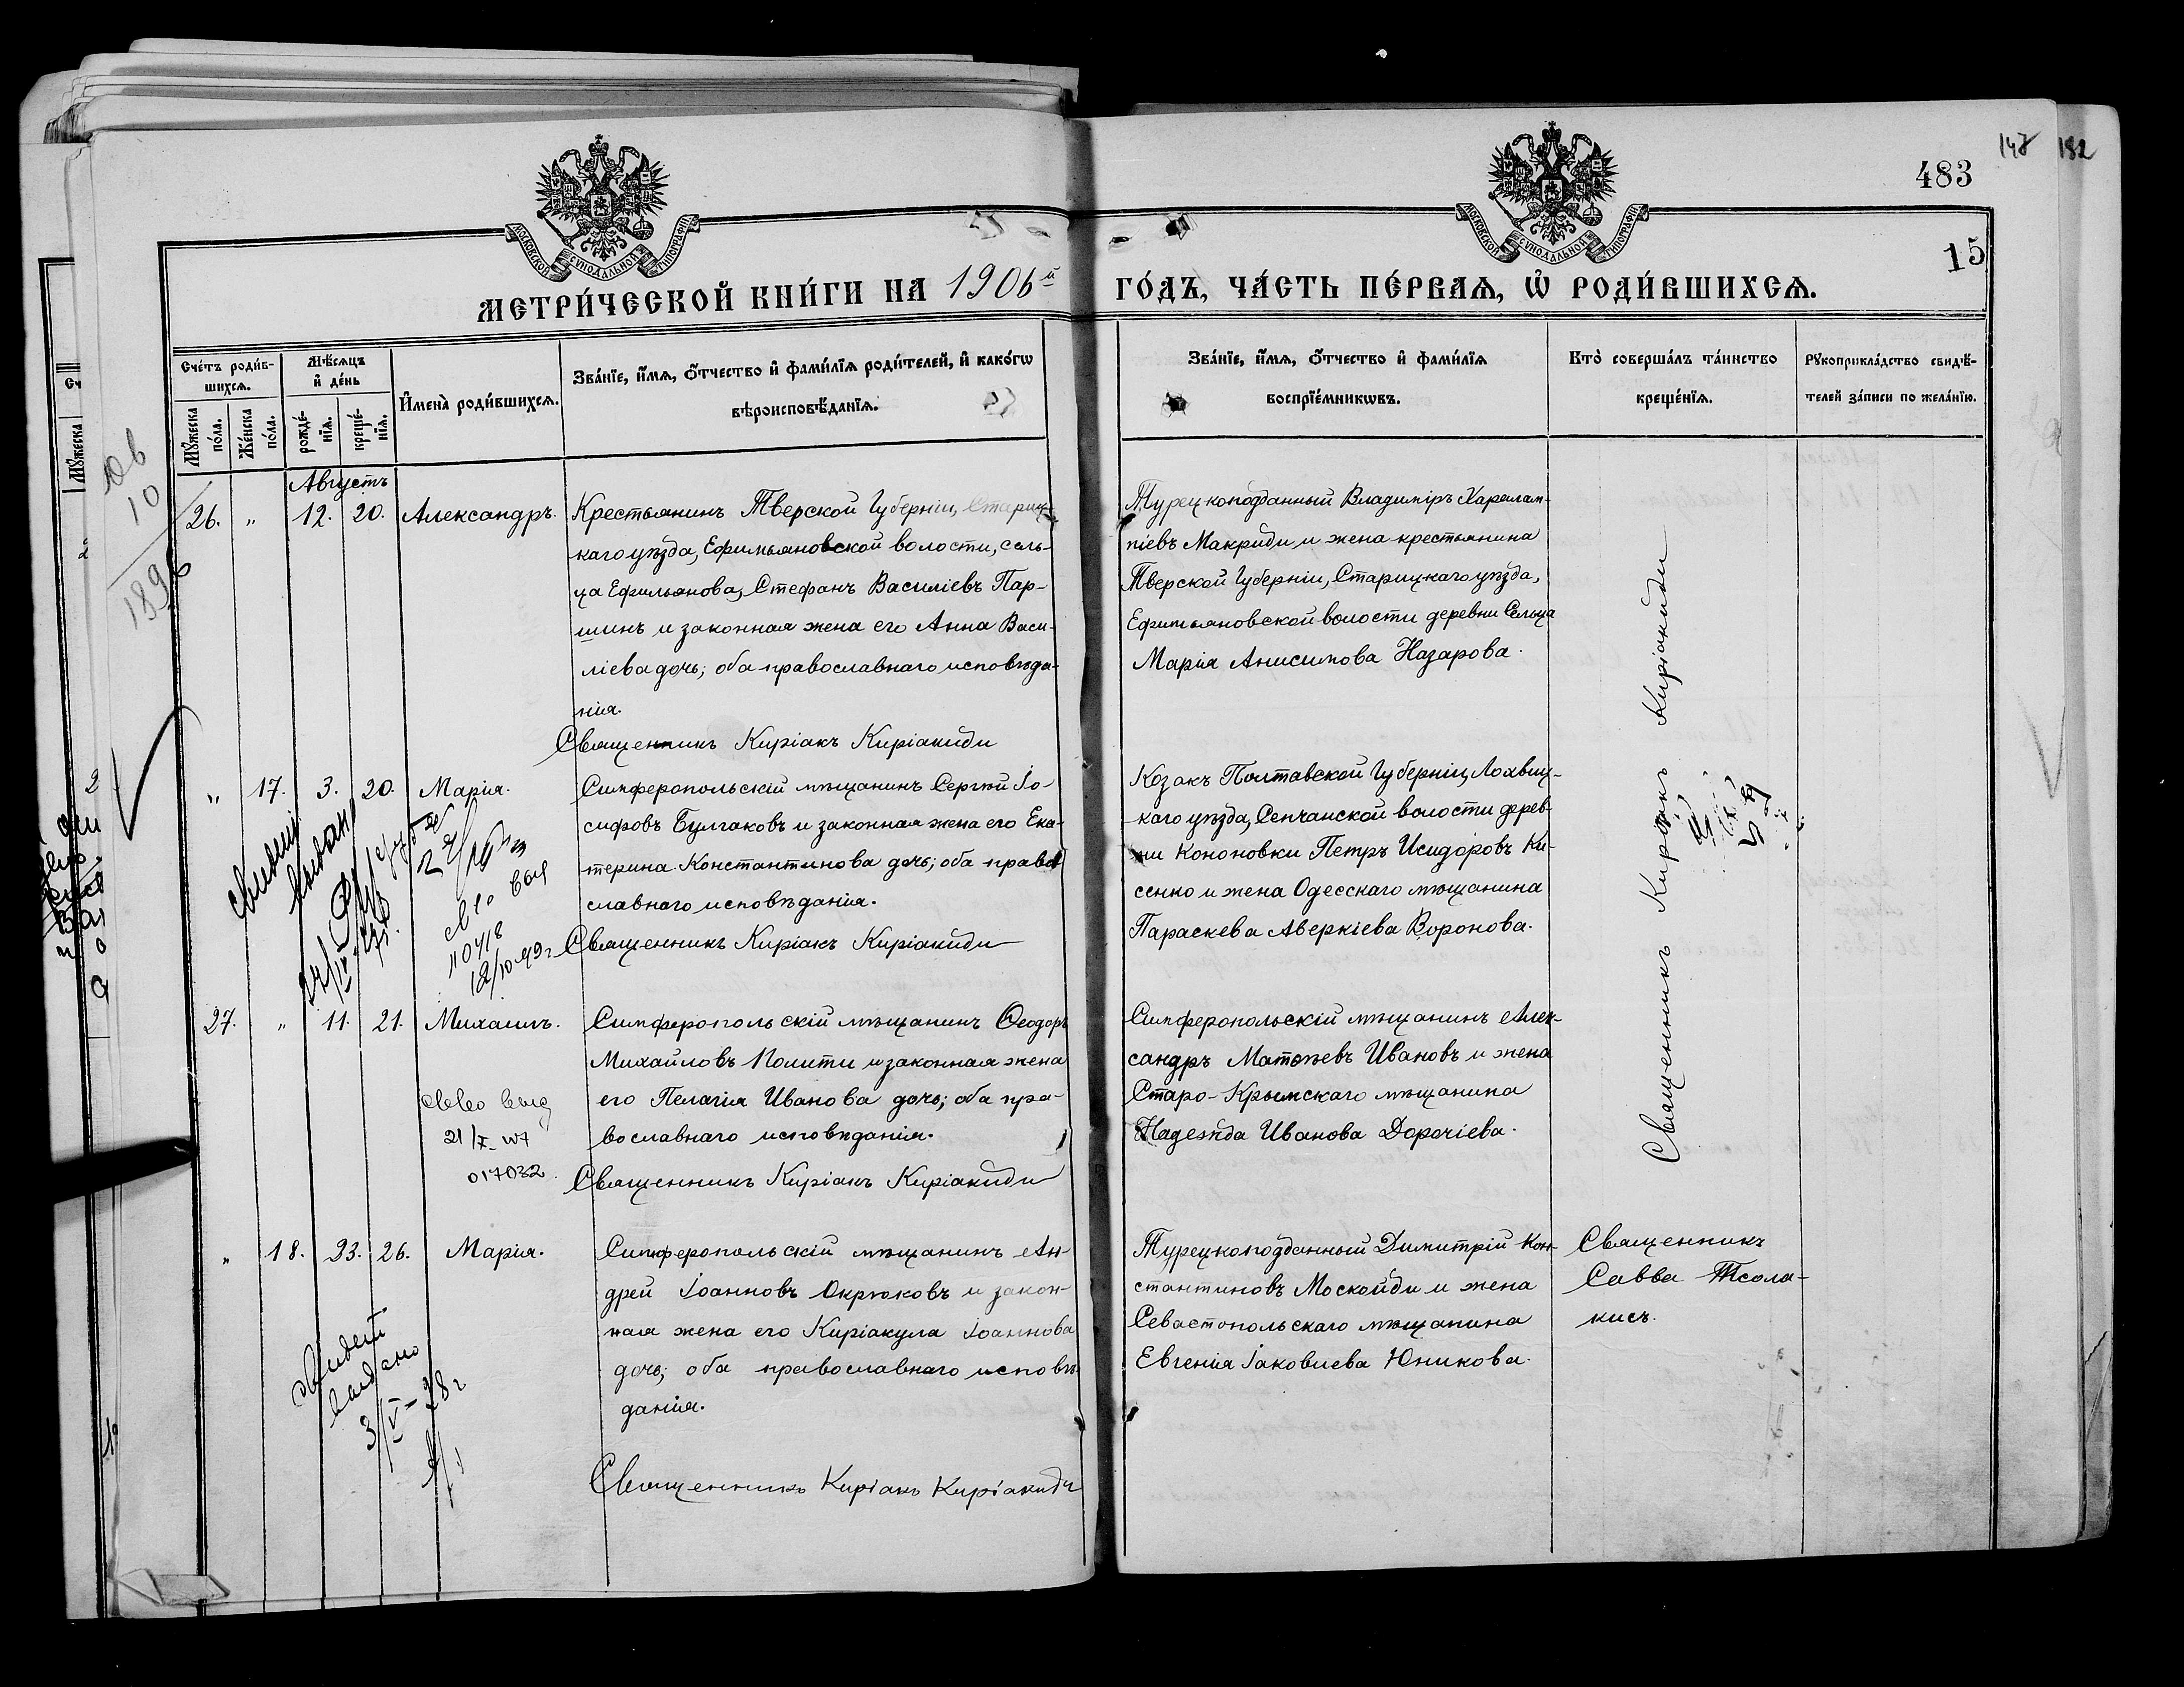 147 182
483
15
МОСКОВСКОЙ СѴНОДАЛЬНОЙ ТИПОГРАФІИ
МОСКОВСКОЙ СѴНОДАЛЬНОЙ ТИПОГРАФІИ
МЕТРИ́ЧЕСКОЙ КНИ́ГИ НА 1906й ГО́ДЪ, ЧА́СТЬ ПЕ́РВАѦ, Ѡ҆ РОДИ́ВШИХСѦ.
Сче́тъ роди́в-
шихсѧ.
Мꙋ́жеска
по́ла.
Же́нска
по́ла.
Мѣ́сѧцъ
и҆ де́нь
рожде́-
нїѧ.
креще́-
нїѧ.
И҆мена̀ роди́вшихсѧ.
Зва́нїе, и҆́мѧ, ѻ҆́тчество и҆ фами́лїѧ роди́телей, и҆ како́гѡ
вѣроисповѣ́данїѧ.
Зва́нїе, и҆́мѧ, ѻ҆́тчество и҆ фами́лїѧ
воспрїе́мникѡвъ.
Кто̀ соверша́лъ та́инство
креще́нїѧ.
Рꙋкоприкла́дство свидѣ́-
телей за́писи по жела́нїю.
Августъ
26. " 12. 20. Александръ.
Крестьянинъ Тверской Губерніи, Стариц-
каго уѣзда, Ефимьяновской волости, сель-
ца Ефимьянова, Стефанъ Василіевъ Пар-
шинъ и законная жена его Анна Васи-
ліева дочь; оба православнаго исповѣда-
нія.
Священникъ Киріакъ Киріакиди
Турецкоподданный Владиміръ Харалам-
піевъ Макриди и жена крестьянина
Тверской Губерніи, Старицкаго уѣзда,
Ефимьяновской волости деревни Сельца
Марія Анисимова Назарова.
Священникъ Киріакъ Киріакиди
" 17. 3. 20. Марія.
Симферопольскій мѣщанинъ Сергѣй Іо-
сифовъ Булгаковъ и законная жена его Ека-
терина Константинова дочь; оба право
славнаго исповѣданія.
Священникъ Киріакъ Киріакиди
Козакъ Полтавской Губерніи, Лохвиц-
каго уѣзда, Сенчанской волости дерев-
ни Кононовки Петръ Исидоровъ Ки-
сенко и жена Одесскаго мѣщанина
Параскева Аверкіева Воронова.
27. " 11. 21. Михаилъ.
21/X 47
017032
Симферопольскій мѣщанинъ Ѳеодоръ
Михайловъ Полити и законная жена
его Пелагія Иванова дочь; оба пра-
вославнаго исповѣданія.
Священникъ Киріакъ Киріакиди
Симферопольскій мѣщанинъ Алек-
сандръ Матѳеевъ Ивановъ и жена
Старо-Крымскаго мѣщанина
Надежда Иванова Дорочіева.
" 18. 23. 26. Марія.
выдано
3/V-28г
Симферопольскій мѣщанинъ Ан-
дрей Іоанновъ Окрюковъ и закон-
ная жена его Киріакула Іоаннова
дочь; оба православнаго исповѣ-
данія.
Священникъ Киріакъ Киріакиди
Турецкоподданный Димитрій Кон-
стантиновъ Москойди и жена
Севастопольскаго мѣщанина
Евгенія Іаковлева Юникова.
Священникъ
Савва Тсола-
кисъ.